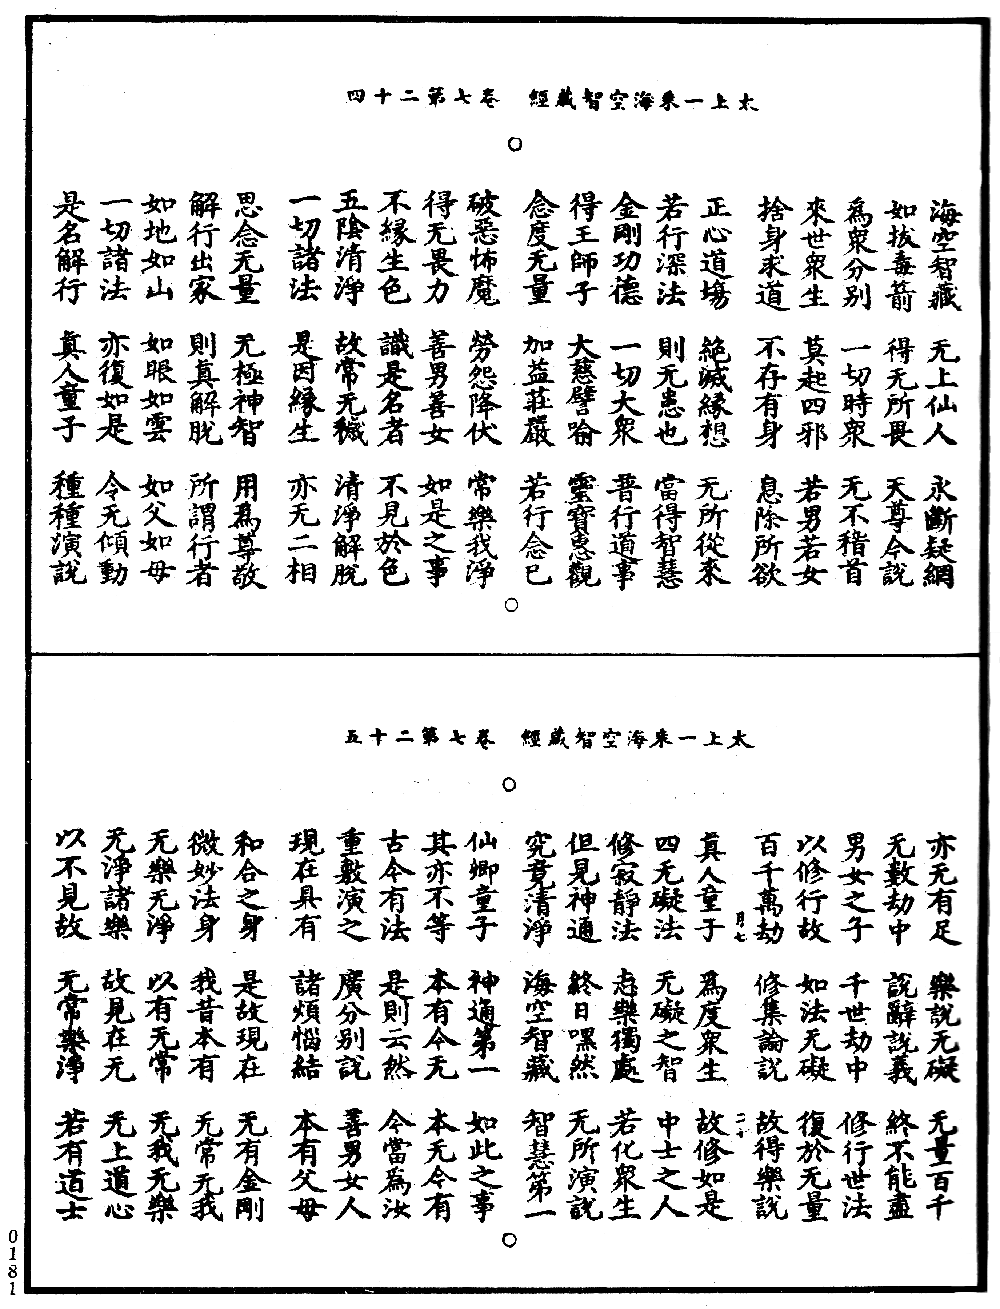 太上一乘海空智藏經　卷七第二十四
海空智藏　无上仙人　永斷疑網
如拔毒箭　得无所畏　天尊今說
爲眾分別　一切時眾　无不稽首
來世眾生　莫起四邪　若男若女
捨身求道　不存有身　息除所欲
正心道場　絕滅緣想　无所從來
若行深法　則无恚也　當得智慧
金剛功德　一切大眾　普行道事
得王師子　大慈譬喻　靈寶惠觀
念度无量　加益莊嚴　若行念已
破惡怖魔　勞怨降伏　常樂我淨
得无畏力　善男善女　如是之事
不緣生色　識是名者　不見於色
五陰清淨　故常无穢　清淨解脫
一切諸法　是因緣生　亦无二相
思念无量　无極神智　用爲尊敬
解行出家　則真解脫　所謂行者
如地如山　如眼如雲　如父如母
一切諸法　亦復如是　令无傾動
是名解行　真人童子　種種演說
太上一乘海空智藏經　卷七第二十五
亦无有足　樂說无礙　无量百千
无數劫中　說辭說義　終不能盡
男女之子　千世劫中　修行世法
以修行故　如法无礙　復於无量
百千萬劫　修集論說　故得樂說
月七　二十
真人童子　爲度眾生　故修如是
四无礙法　无礙之智　中士之人
修寂靜法　志樂獨處　若化眾生
但見神通　終日嘿然　无所演說
究竟清淨　海空智藏　智慧第一
仙卿童子　神通第一　如此之事
其亦不等　本有今无　本无今有
古今有法　是則云然　今當爲汝
重敷演之　廣分別說　善男女人
現在具有　諸煩惱結　本有父母
和合之身　是故現在　无有金剛
微妙法身　我昔本有　无常无我
无樂无淨　以有无常　无我无樂
无淨諸樂　故見在无　无上道心
以不見故　无常樂淨　若有道士
0181